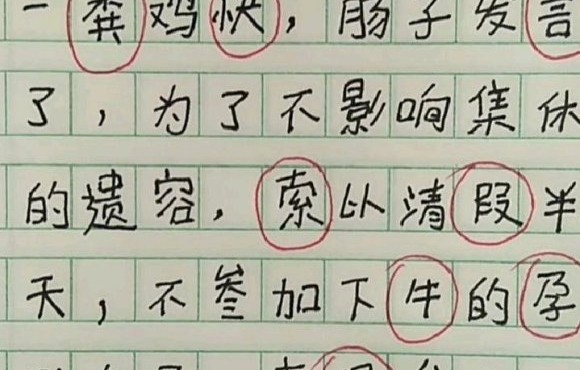 一粪鸡快，肠子发言
了，为了不影响集休
的遗容，索以清段半
天，不叁加下牛的孕